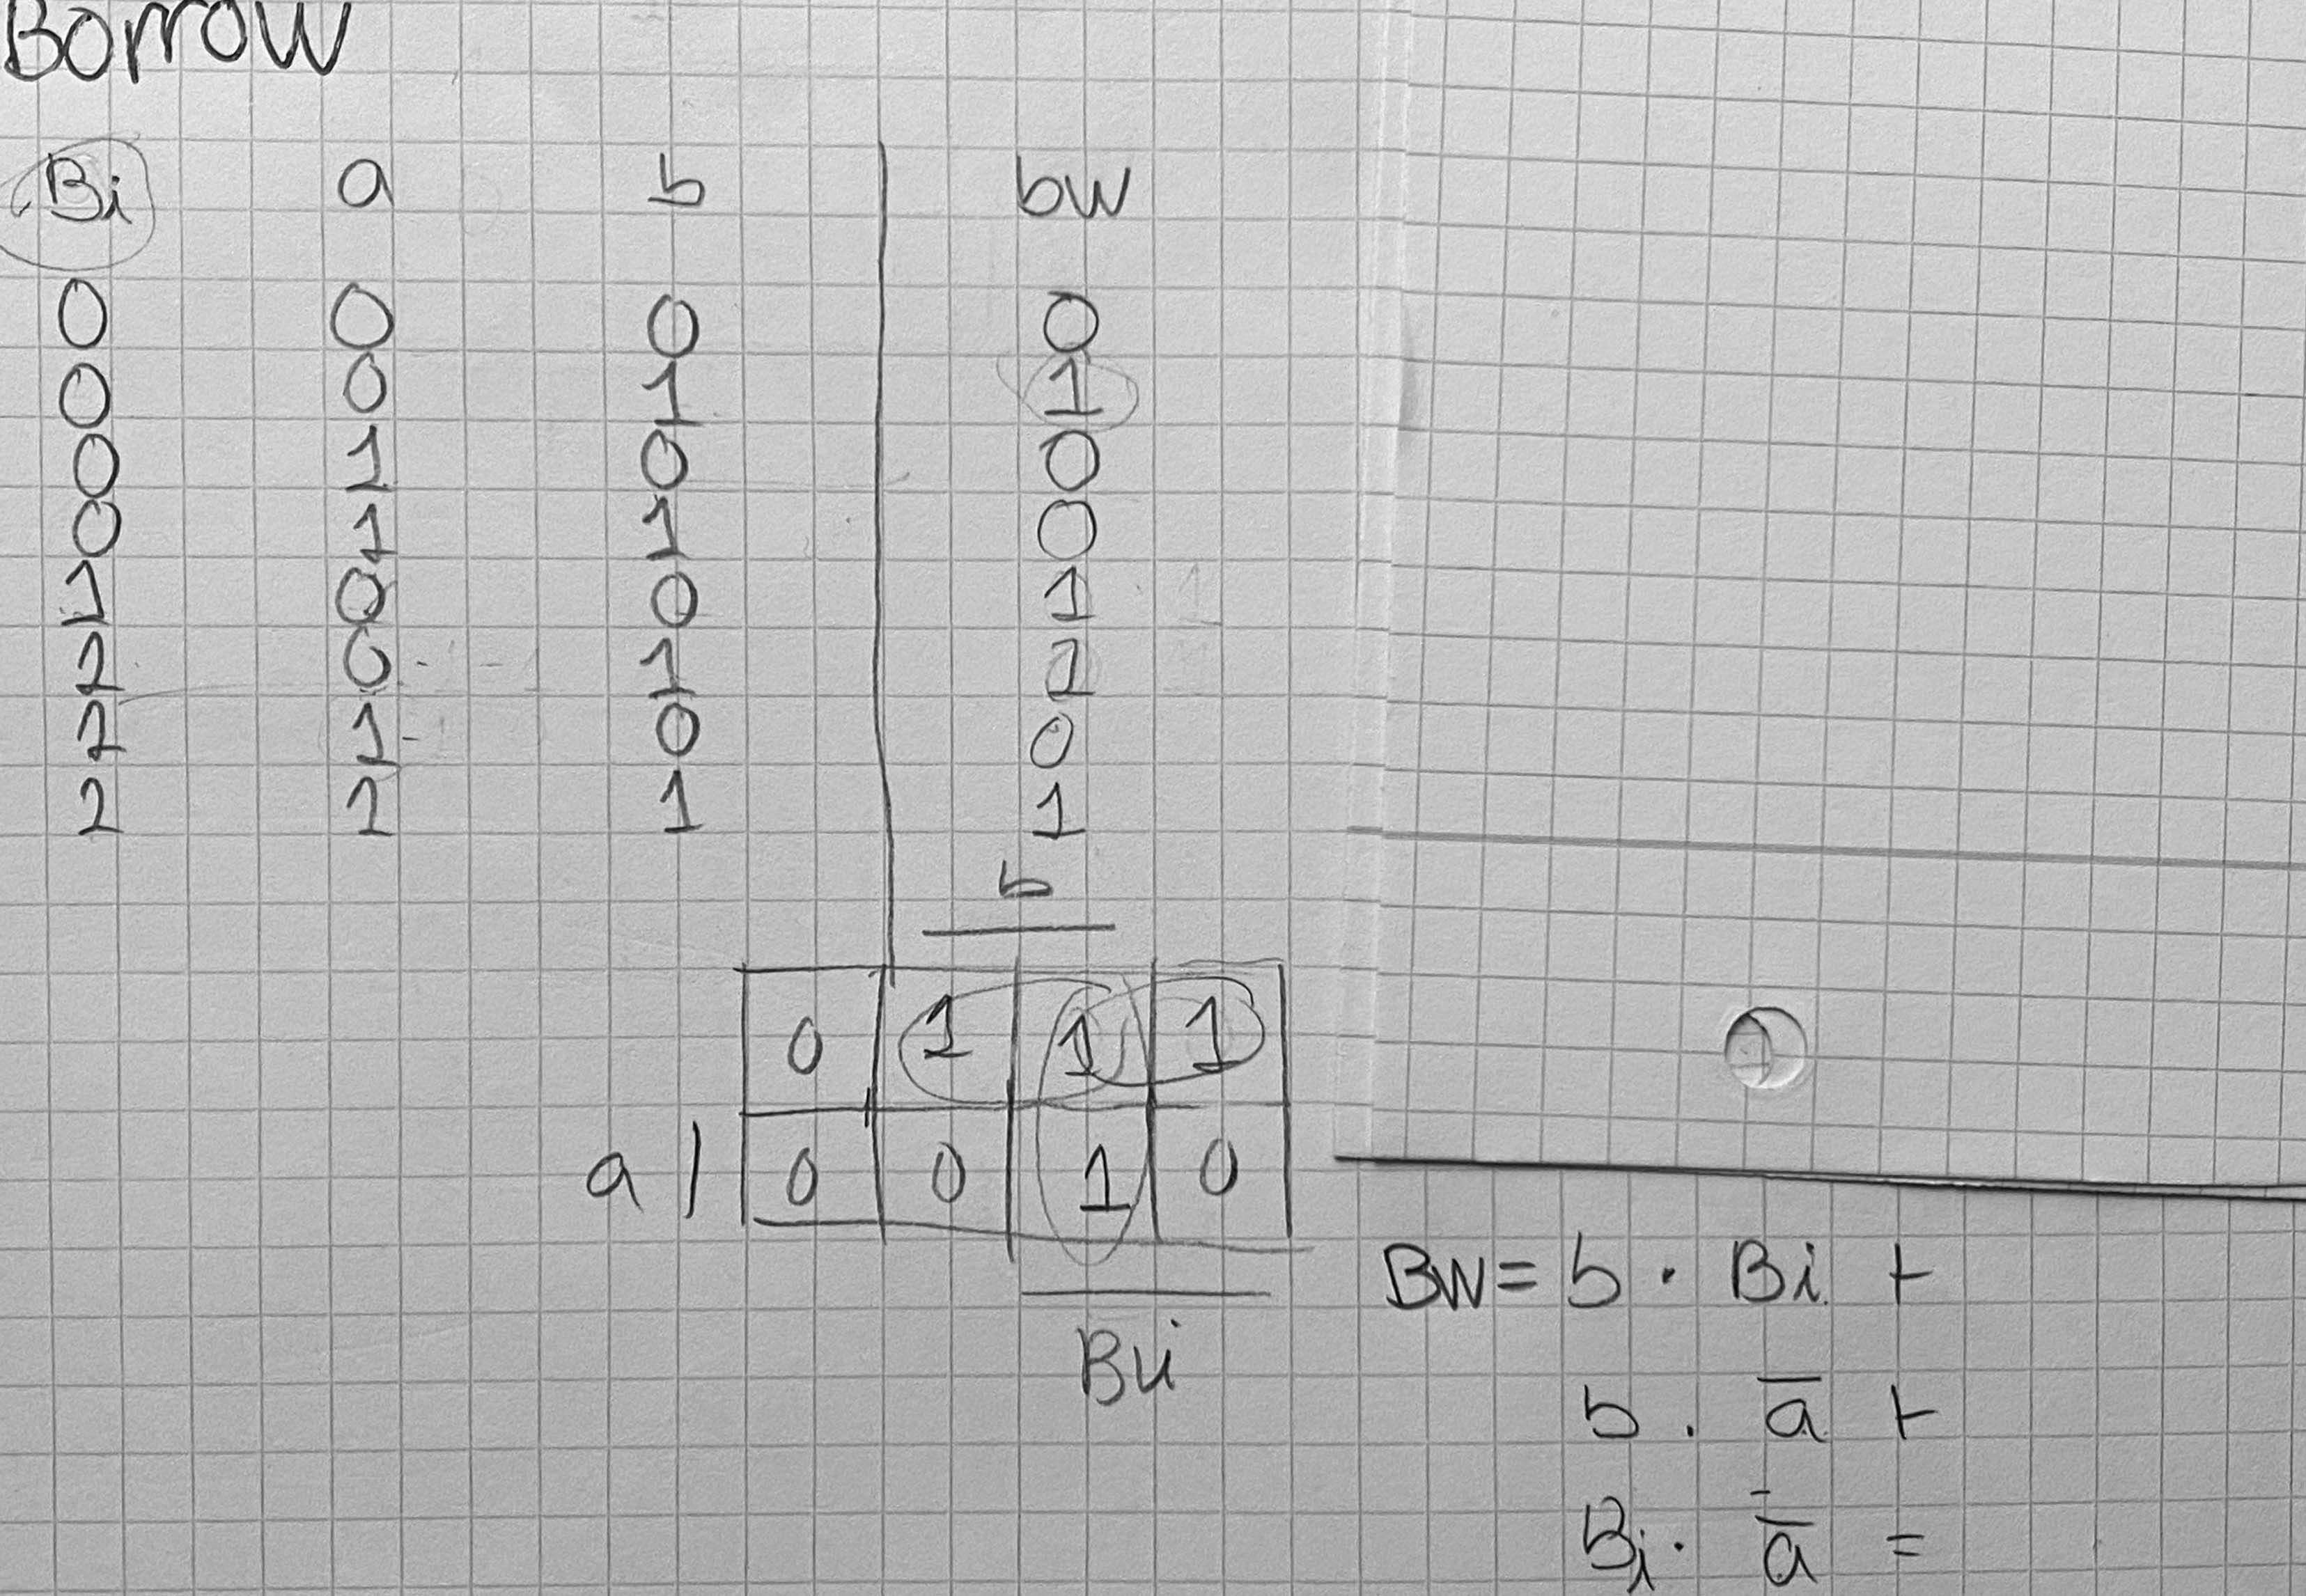 Borrow
Bi a b bw
0 0 0 0
0 0 1 1
0 1 0 0
0 1 1 0
1 0 0 1
1 0 1 1
1 1 0 0
1 1 1 1
b
0 1 1 1
a 0 0 1 0
Bi
BW = b · Bi +
b · a̅ +
Bi · a̅ =